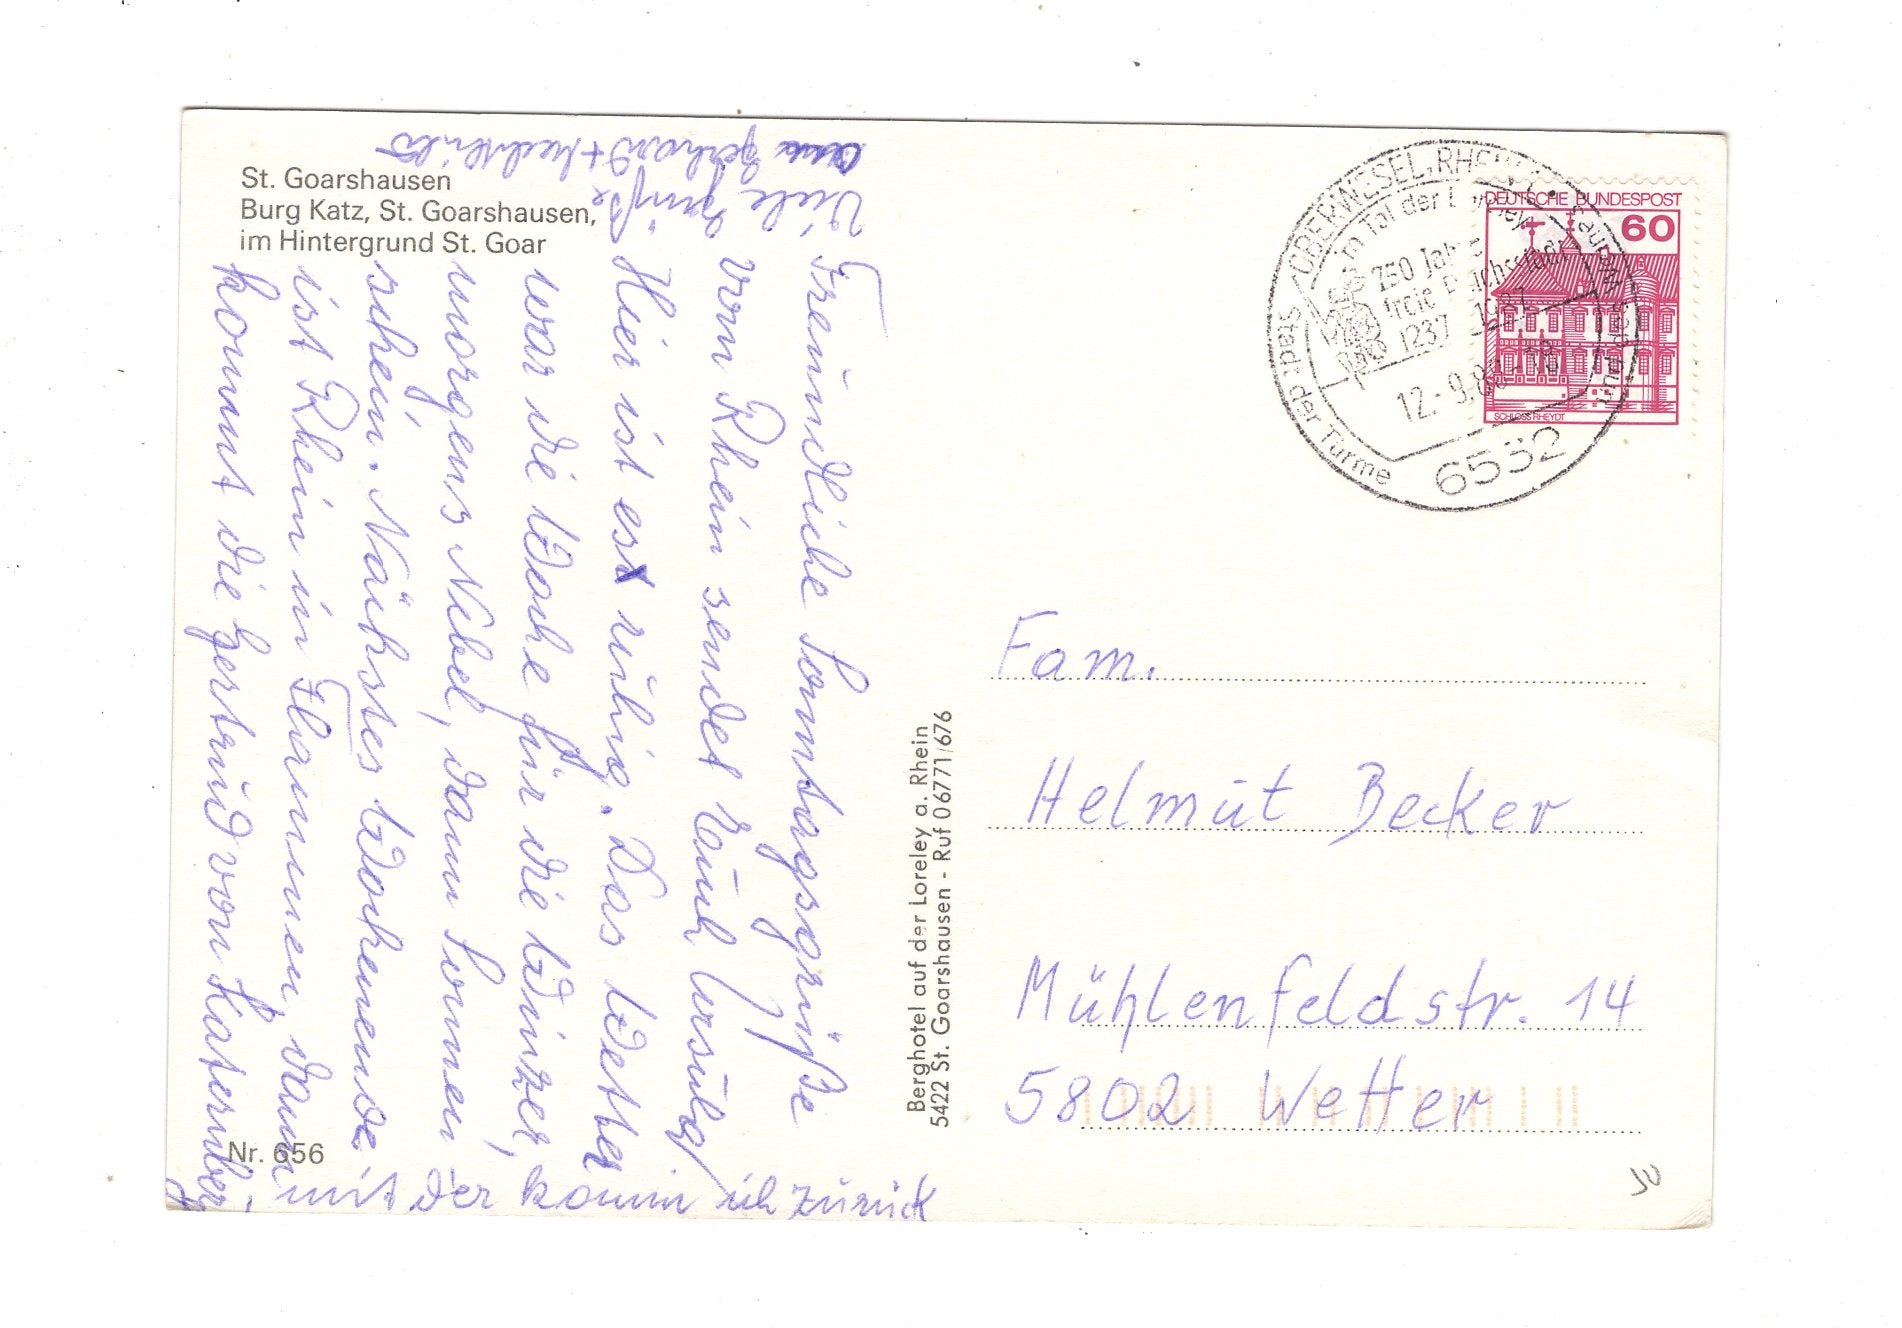 St. Goarshausen
Burg Katz, St. Goarshausen,
im Hintergrund St. Goar
Freundliche Sonntagsgrüße
vom Rhein sendet Euch Ursula
Hier ist es ruhig. Das Wetter
war die Woche für die Winzer,
morgens Nebel, dann Sonnen
schein. Nächstes Wochenende
ist Rhein in Flammen, dann
kommt die Gertrud von Katernberg
mit der komm ich zurück
Viele Grüße
an
Nr. 656
Berghotel auf der Loreley a. Rhein
5422 St. Goarshausen - Ruf 06771/676
DEUTSCHE BUNDESPOST
60
SCHLOSS RHEYDT
OBERWESEL, RHEIN
Stadt der Türme und des Weines
im Tal der Loreley
750 Jahre
freie Reichsstadt
1237 1987
12.-9.87-18
6532
Fam.
Helmut Becker
Mühlenfeldstr. 14
5802 Wetter